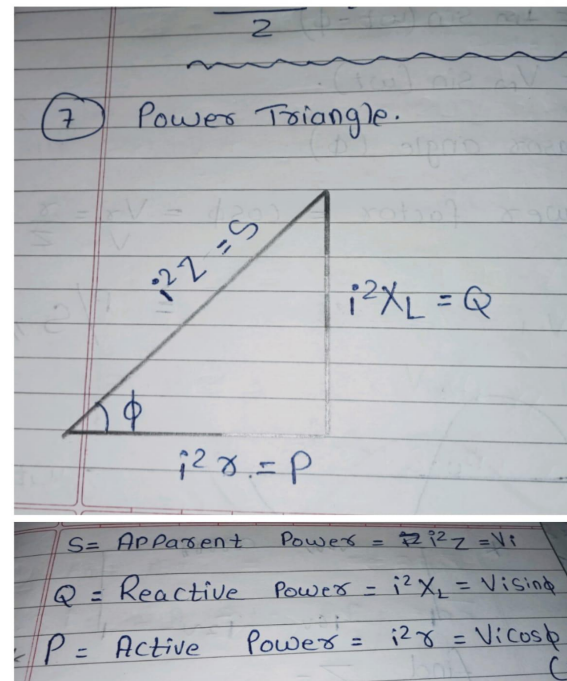 2
7 Power Triangle.
i²Z = S
i²X_L = Q
ϕ
i²r. = P
S = Apparent Power = i²z = Vi
Q = Reactive Power = i²X_L = Visinϕ
P = Active Power = i²r = Vicosϕ